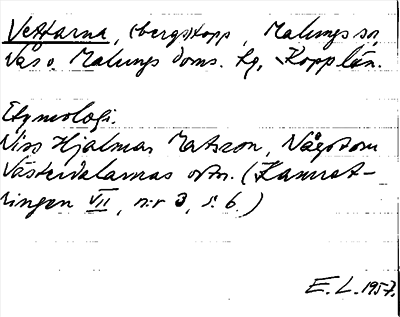 Vettarna, (bergs)topp, Malungs sn,
Näs o. Malungs doms. hg, Kopp. län.
Etymologi.
Niss Hjalmar Matsson, Något om
Västerdalarnas ortn. (Kamrat-
ringen VII, n:r 3, s. 6.)
E. L. 1957.